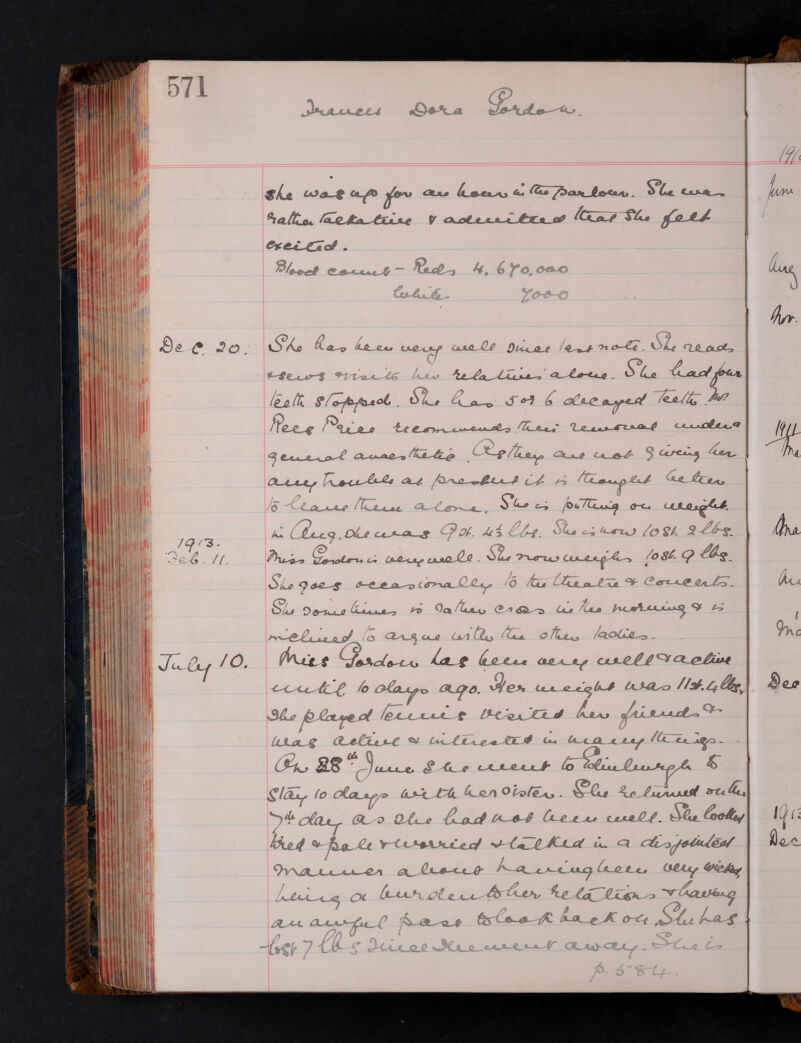 571
Frances Dora Gordon.
she was up for an hour in the parlour. She was
rather talkative & admitted that she felt
excited.
Blood count - Reds 4,670,000
White 7000
Dec. 20. She has been very well since last note. She reads
& sews & visits her relatives alone. She had four
teeth stopped. She has 5 or 6 decayed teeth. Mr
Rees Price recommends their removal under a
general anaesthetic. As they are not giving her
any trouble at present it is thought better
to leave them alone. She is putting on weight.
in Aug. she was 9st. 4½ lbs. She is now 10st. 2 lbs.
1913.
Feb. 11. Miss Gordon is very well. She now weighs 10st. 9 lbs.
She goes occasionally to the theatre & concerts.
She sometimes is rather cross in the morning & is
inclined to argue with the other ladies.
July 10. Miss Gordon has been very well & active
until 10 days ago. Her weight was 11st. 4 lbs.
She played tennis visited her friends &
was active & interested in many things.
On 28th June she went to Edinburgh to
stay 10 days with her sister. She returned on the
7th day as she had not been well. She looked
tired & pale & worried & talked in a disjointed
manner about having been very wicked,
being a burden to her relations & having
an awful past to look back on. She has
lost 7 lbs since she went away. She is
p. 584.
June
Aug
Nov.
1911
Dec
1913
Dec